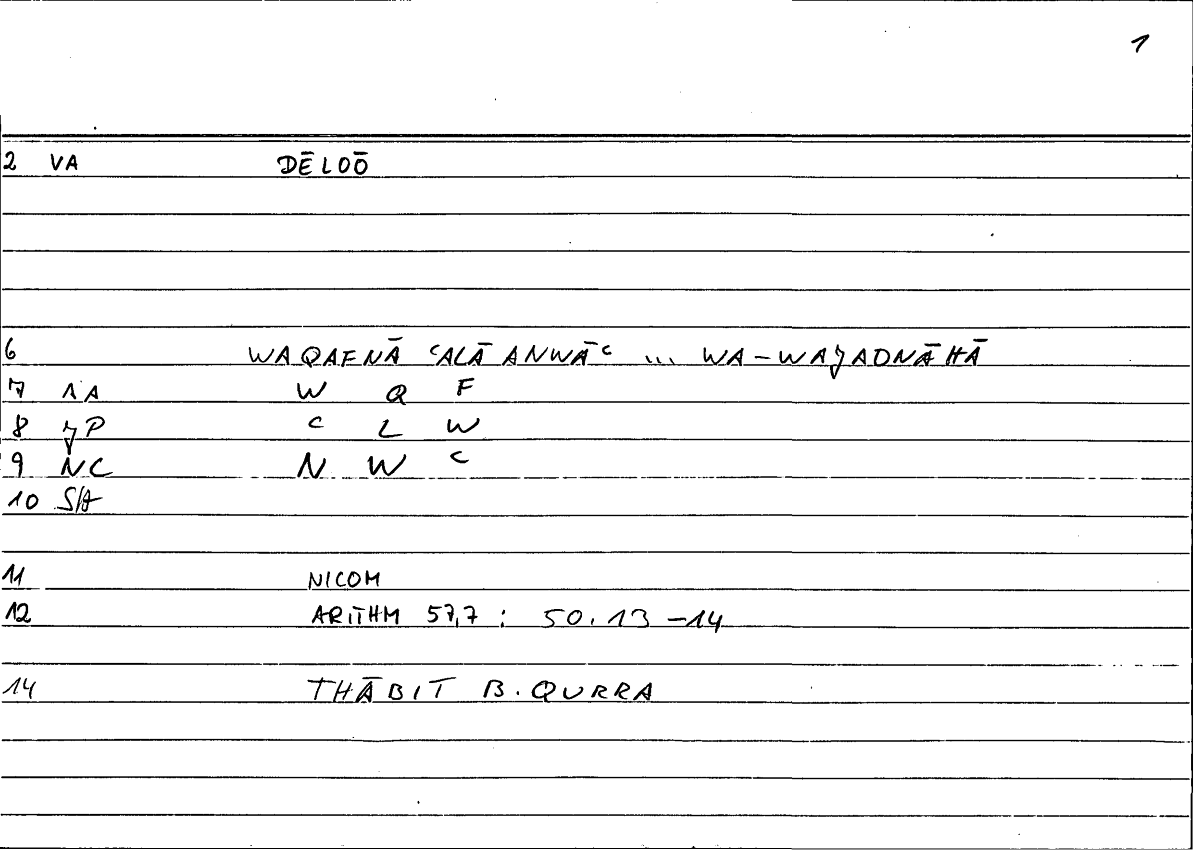 1
2 VA DĒLOŌ
6 WAQAFNĀ ʿALĀ ANWĀʿ ... WA-WAJADNĀHĀ
7 1A W Q F
8 JP ʿ L W
9 NC N W ʿ
10 S/A
11 NICOM
12 ARITHM 57,7 : 50.13-14
14 THĀBIT B. QURRA